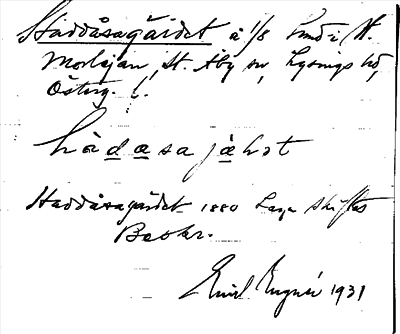 Haddåsagärdet å 1/8 Smd i N.
Morlejan, St. Åby sn, Lysings hd,
Österg. l.
hådasajæ̀ḷət
Haddåsagärdet 1880 Laga skiftes
Beskr.
Emil 1931